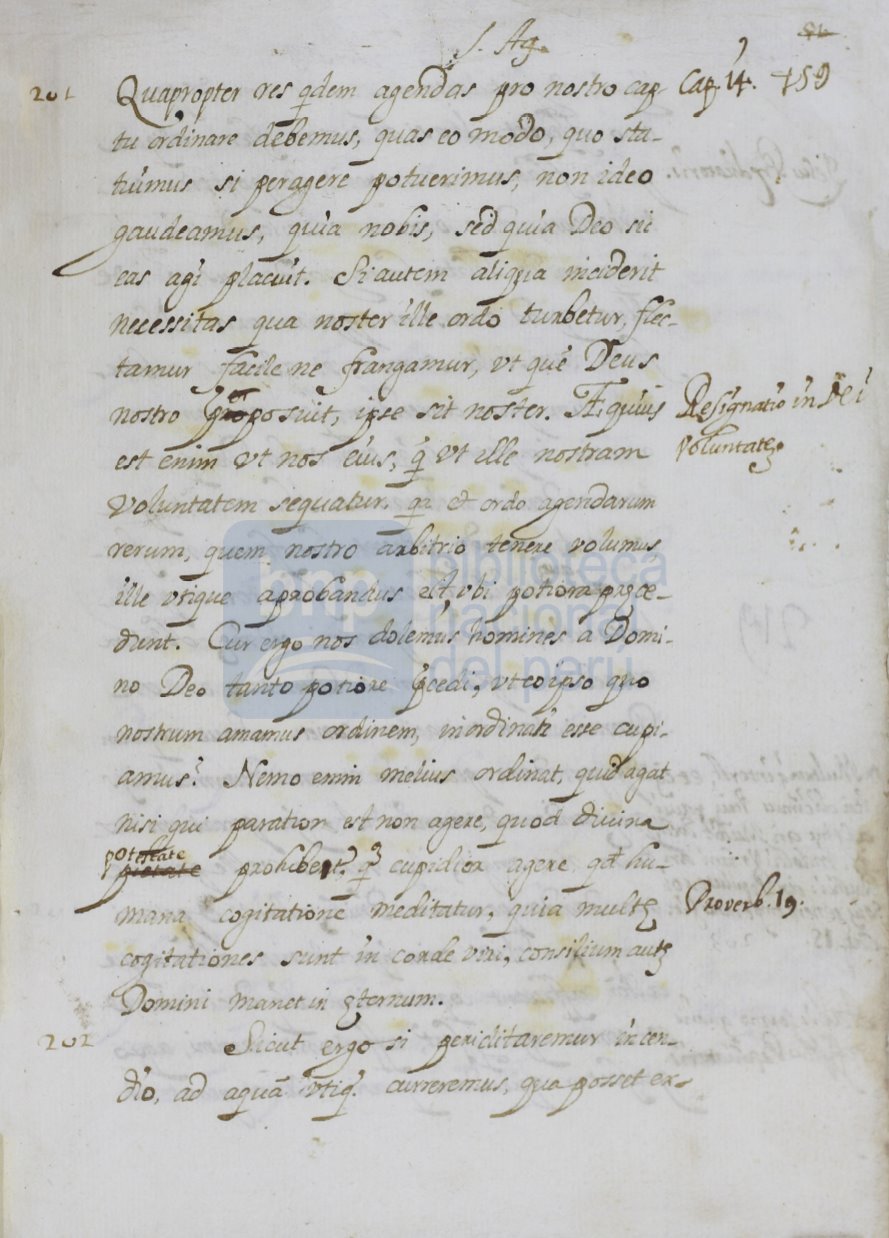 S. Ag.
201 Quapropter res qdem agendas pro nostro cap- Cap. 14. +59
tu ordinare debemus, quas eo modo, quo sta-
tuimus si peragere potuerimus, non ideo
gaudeamus, quia nobis, sed quia Deo sic
eas agi placuit. Si autem aliqua inciderit
necessitas qua noster ille ordo turbetur, flec-
tamur facile ne frangamur, vt quē Deus
nostro posuit, ipse sit noster. Æquius Resignatio in Dei
est enim vt nos eius, q̄ vt ille nostram voluntatē
voluntatem sequatur. qa et ordo agendarum
rerum, quem nostro arbitrio tenere volumus
ille vtique aprobandus est, vbi potiora præce-
dunt. Cur ergo nos dolemus homines a Domi-
no Deo tanto potiore p̄cedi, vt eo ipso quo
nostrum amamus ordinem, inordinati esse cupi-
amus? Nemo enim melius ordinat, quid agat
nisi qui paratior est non agere, quod divina
potestate
pietate prohibet q̄ cupidior agere, qd hu-
mana cogitationē meditatur, quia multę Proverb. 19.
cogitationes sunt in corde viri, consilium autē
Domini manet in ęternum.
202 Sicut ergo si periclitaremur incen-
dio, ad aquā vtiq. curreremus, qua posset ex-
biblioteca
nacional
del perú
bnp